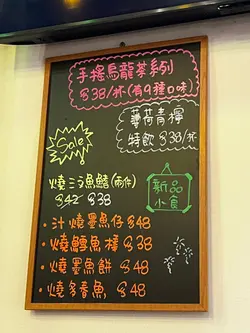 手搖烏龍茶系列
$38/杯(有9種口味)
薄荷青檸
特飲 $38/杯
Sale
燒三文魚鰭(兩件)
$42 $38
新品
小食
・汁燒墨魚仔 $48
・燒鱈魚棒 $38
・燒墨魚餅 $48
・燒多春魚 $48